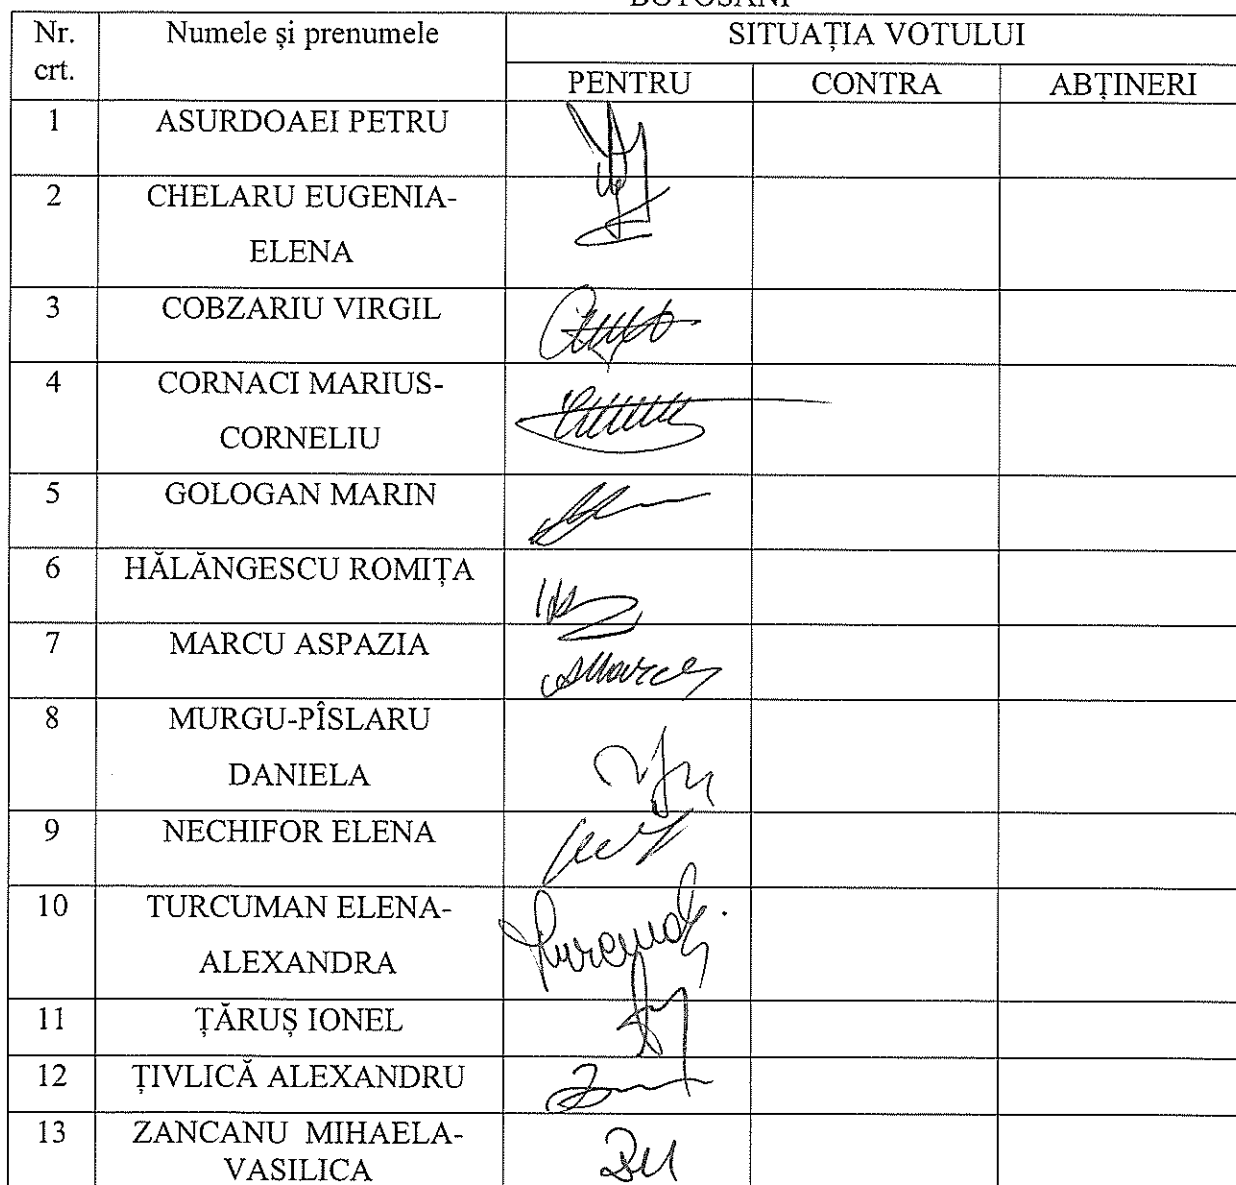 BOTOȘANI
Nr. crt. Numele și prenumele SITUAȚIA VOTULUI
PENTRU CONTRA ABȚINERI
1 ASURDOAEI PETRU
2 CHELARU EUGENIA-
ELENA
3 COBZARIU VIRGIL
4 CORNACI MARIUS-
CORNELIU
5 GOLOGAN MARIN
6 HĂLĂNGESCU ROMIȚA
7 MARCU ASPAZIA
8 MURGU-PÎSLARU
DANIELA
9 NECHIFOR ELENA
10 TURCUMAN ELENA-
ALEXANDRA
11 ȚĂRUȘ IONEL
12 ȚIVLICĂ ALEXANDRU
13 ZANCANU MIHAELA-
VASILICA